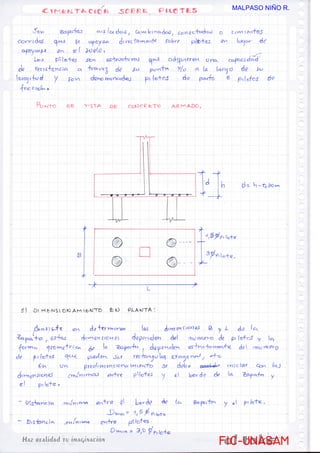 MALPASO NIÑO R.
CIMENTACIÓN SOBRE PILOTES
Son zapatas aisladas, combinadas, conectadas o cimientos
corridos que se apoyan directamente sobre pilotes en lugar de
apoyarse en el suelo.
Los Pilotes son estructuras que adquieren una capacidad
de resistencia a través de su punta y/o a lo largo de su
longitud y son denominados pilotes de punta o pilotes de
fricción.
PUNTO DE VISTA DE CONCRETO ARMADO,
d h
B
L
DIMENSIONAMIENTO EN PLANTA:
Consiste en determinar las dimensiones B y L de la
Zapata, estas dimensiones dependen del número de pilotes y la
forma geométrica de la Zapata, dependen estrictamente del número
de pilotes que pueden ser rectangular, exagonal, etc
En un predimensionamiento se debe iniciar con las
dimensiones mínimas entre pilotes y el borde de la Zapata y
el pilote.
- Distancia mínima entre el borde de la Zapata y el pilote.
Dmin = 1,5 Ø pilote
- Distancia mínima entre pilotes
Dmin = 3,0 Ø pilote
Haz realidad tu imaginación
FIC-UNASAM